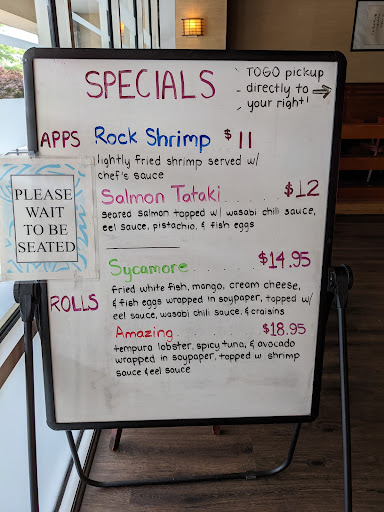 SPECIALS
TOGO pickup
directly to →
your right!
APPS Rock Shrimp $11
lightly fried shrimp served w/
chef's sauce
Salmon Tataki $12
seared salmon topped w/ wasabi chili sauce,
eel sauce, pistachio, & fish eggs
PLEASE
WAIT
TO BE
SEATED
Sycamore $14.95
ROLLS
fried white fish, mango, cream cheese,
& fish eggs wrapped in soypaper, topped w/
eel sauce, wasabi chili sauce, & craisins
Amazing $18.95
tempura lobster, spicy tuna, & avocado
wrapped in soypaper, topped w shrimp
sauce & eel sauce